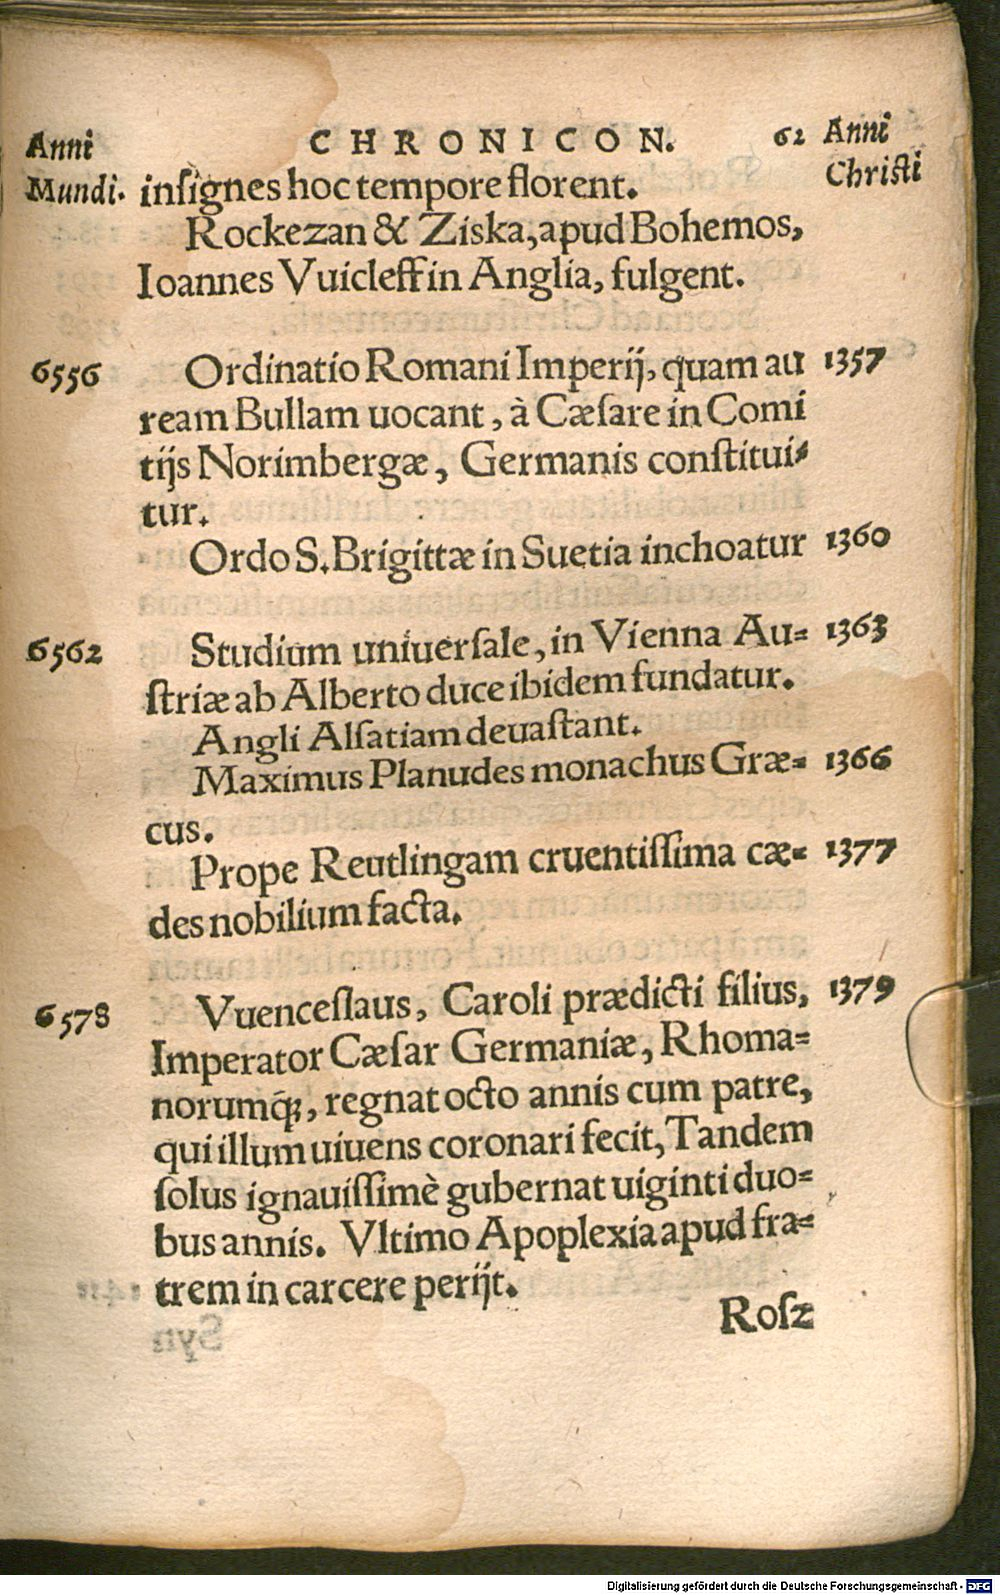 Anni CHRONICON. 62 Anni
Mundi. inſignes hoc tempore florent. Chriſti
Rockezan & Ziska, apud Bohemos,
Ioannes Vuicleff in Anglia, fulgent.
6556 Ordinatio Romani Imperij, quam au 1357
ream Bullam uocant, à Cæſare in Comi
tijs Norimbergæ, Germanis conſtitui⸗
tur.
Ordo S. Brigittæ in Suetia inchoatur 1360
6562 Studium uniuerſale, in Vienna Au⸗ 1363
ſtriæ ab Alberto duce ibidem fundatur.
Angli Alſatiam deuaſtant.
Maximus Planudes monachus Græ⸗ 1366
cus.
Prope Reutlingam cruentiſſima cæ⸗ 1377
des nobilium facta.
6578 Vuenceſlaus, Caroli prædicti filius, 1379
Imperator Cæſar Germaniæ, Rhoma⸗
norumq́;, regnat octo annis cum patre,
qui illum uiuens coronari fecit, Tandem
ſolus ignauiſſimè gubernat uiginti duo⸗
bus annis. Vltimo Apoplexia apud fra⸗
trem in carcere perijt.
Roſz
Digitalisierung gefördert durch die Deutsche Forschungsgemeinschaft - DFG